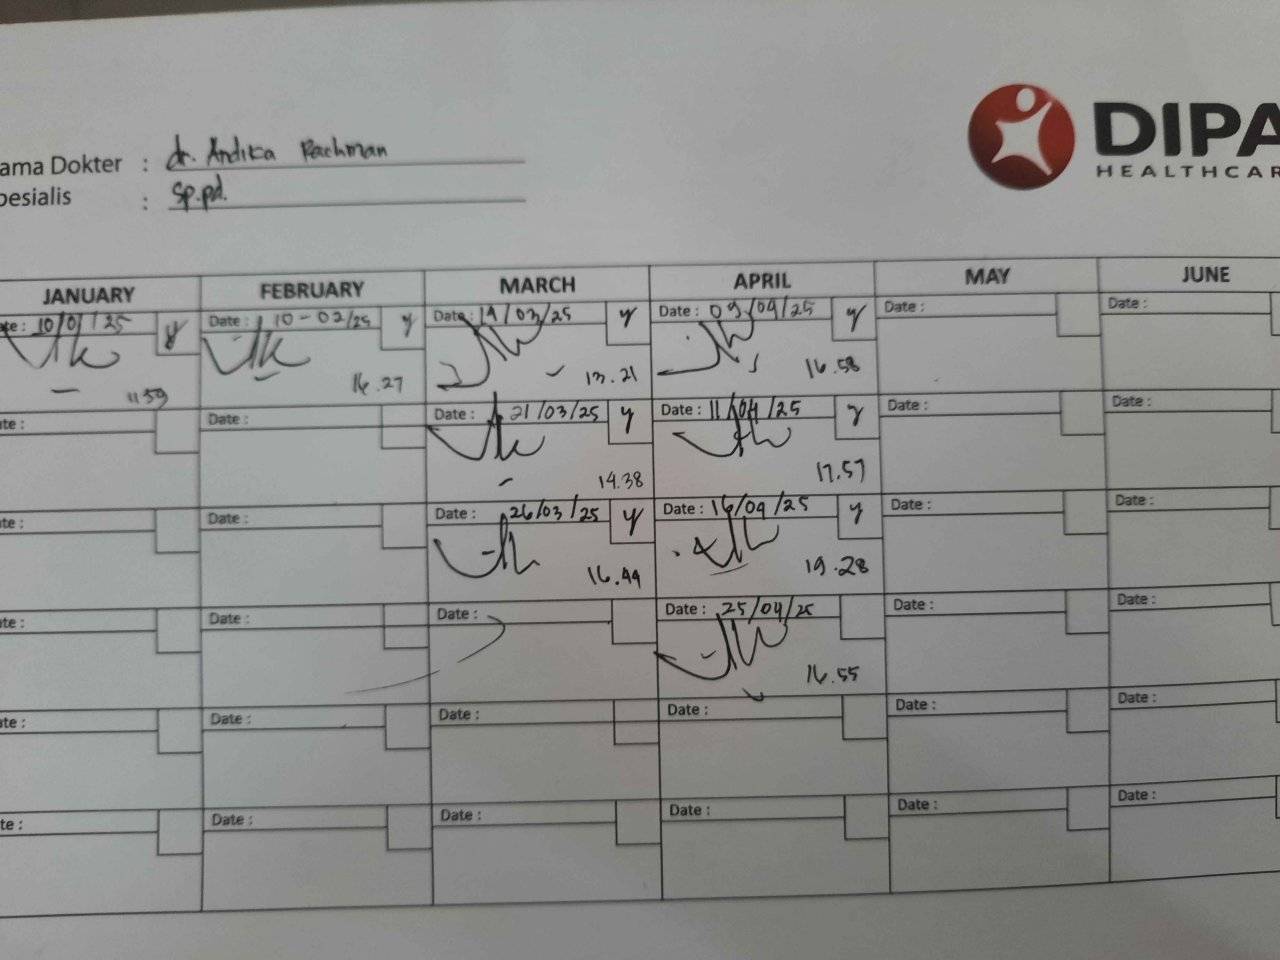 DIPA
HEALTHCAR
ama Dokter : dr. Andika Rachman
pesialis : Sp.pd.
JANUARY FEBRUARY MARCH APRIL MAY JUNE
te: 10/01/25 y Date: 10-02/25 y Date: 19/03/25 y Date: 09/04/25 y Date: Date:
11 59 16.27 13.21 16.58
te: Date: Date: 21/03/25 y Date: 11/04/25 y Date: Date:
14.38 17.57
te: Date: Date: 26/03/25 y Date: 16/04/25 y Date: Date:
16.44 19.28
te: Date: Date: Date: 25/04/25 Date: Date:
16.55
te: Date: Date: Date: Date: Date:
te: Date: Date: Date: Date: Date: